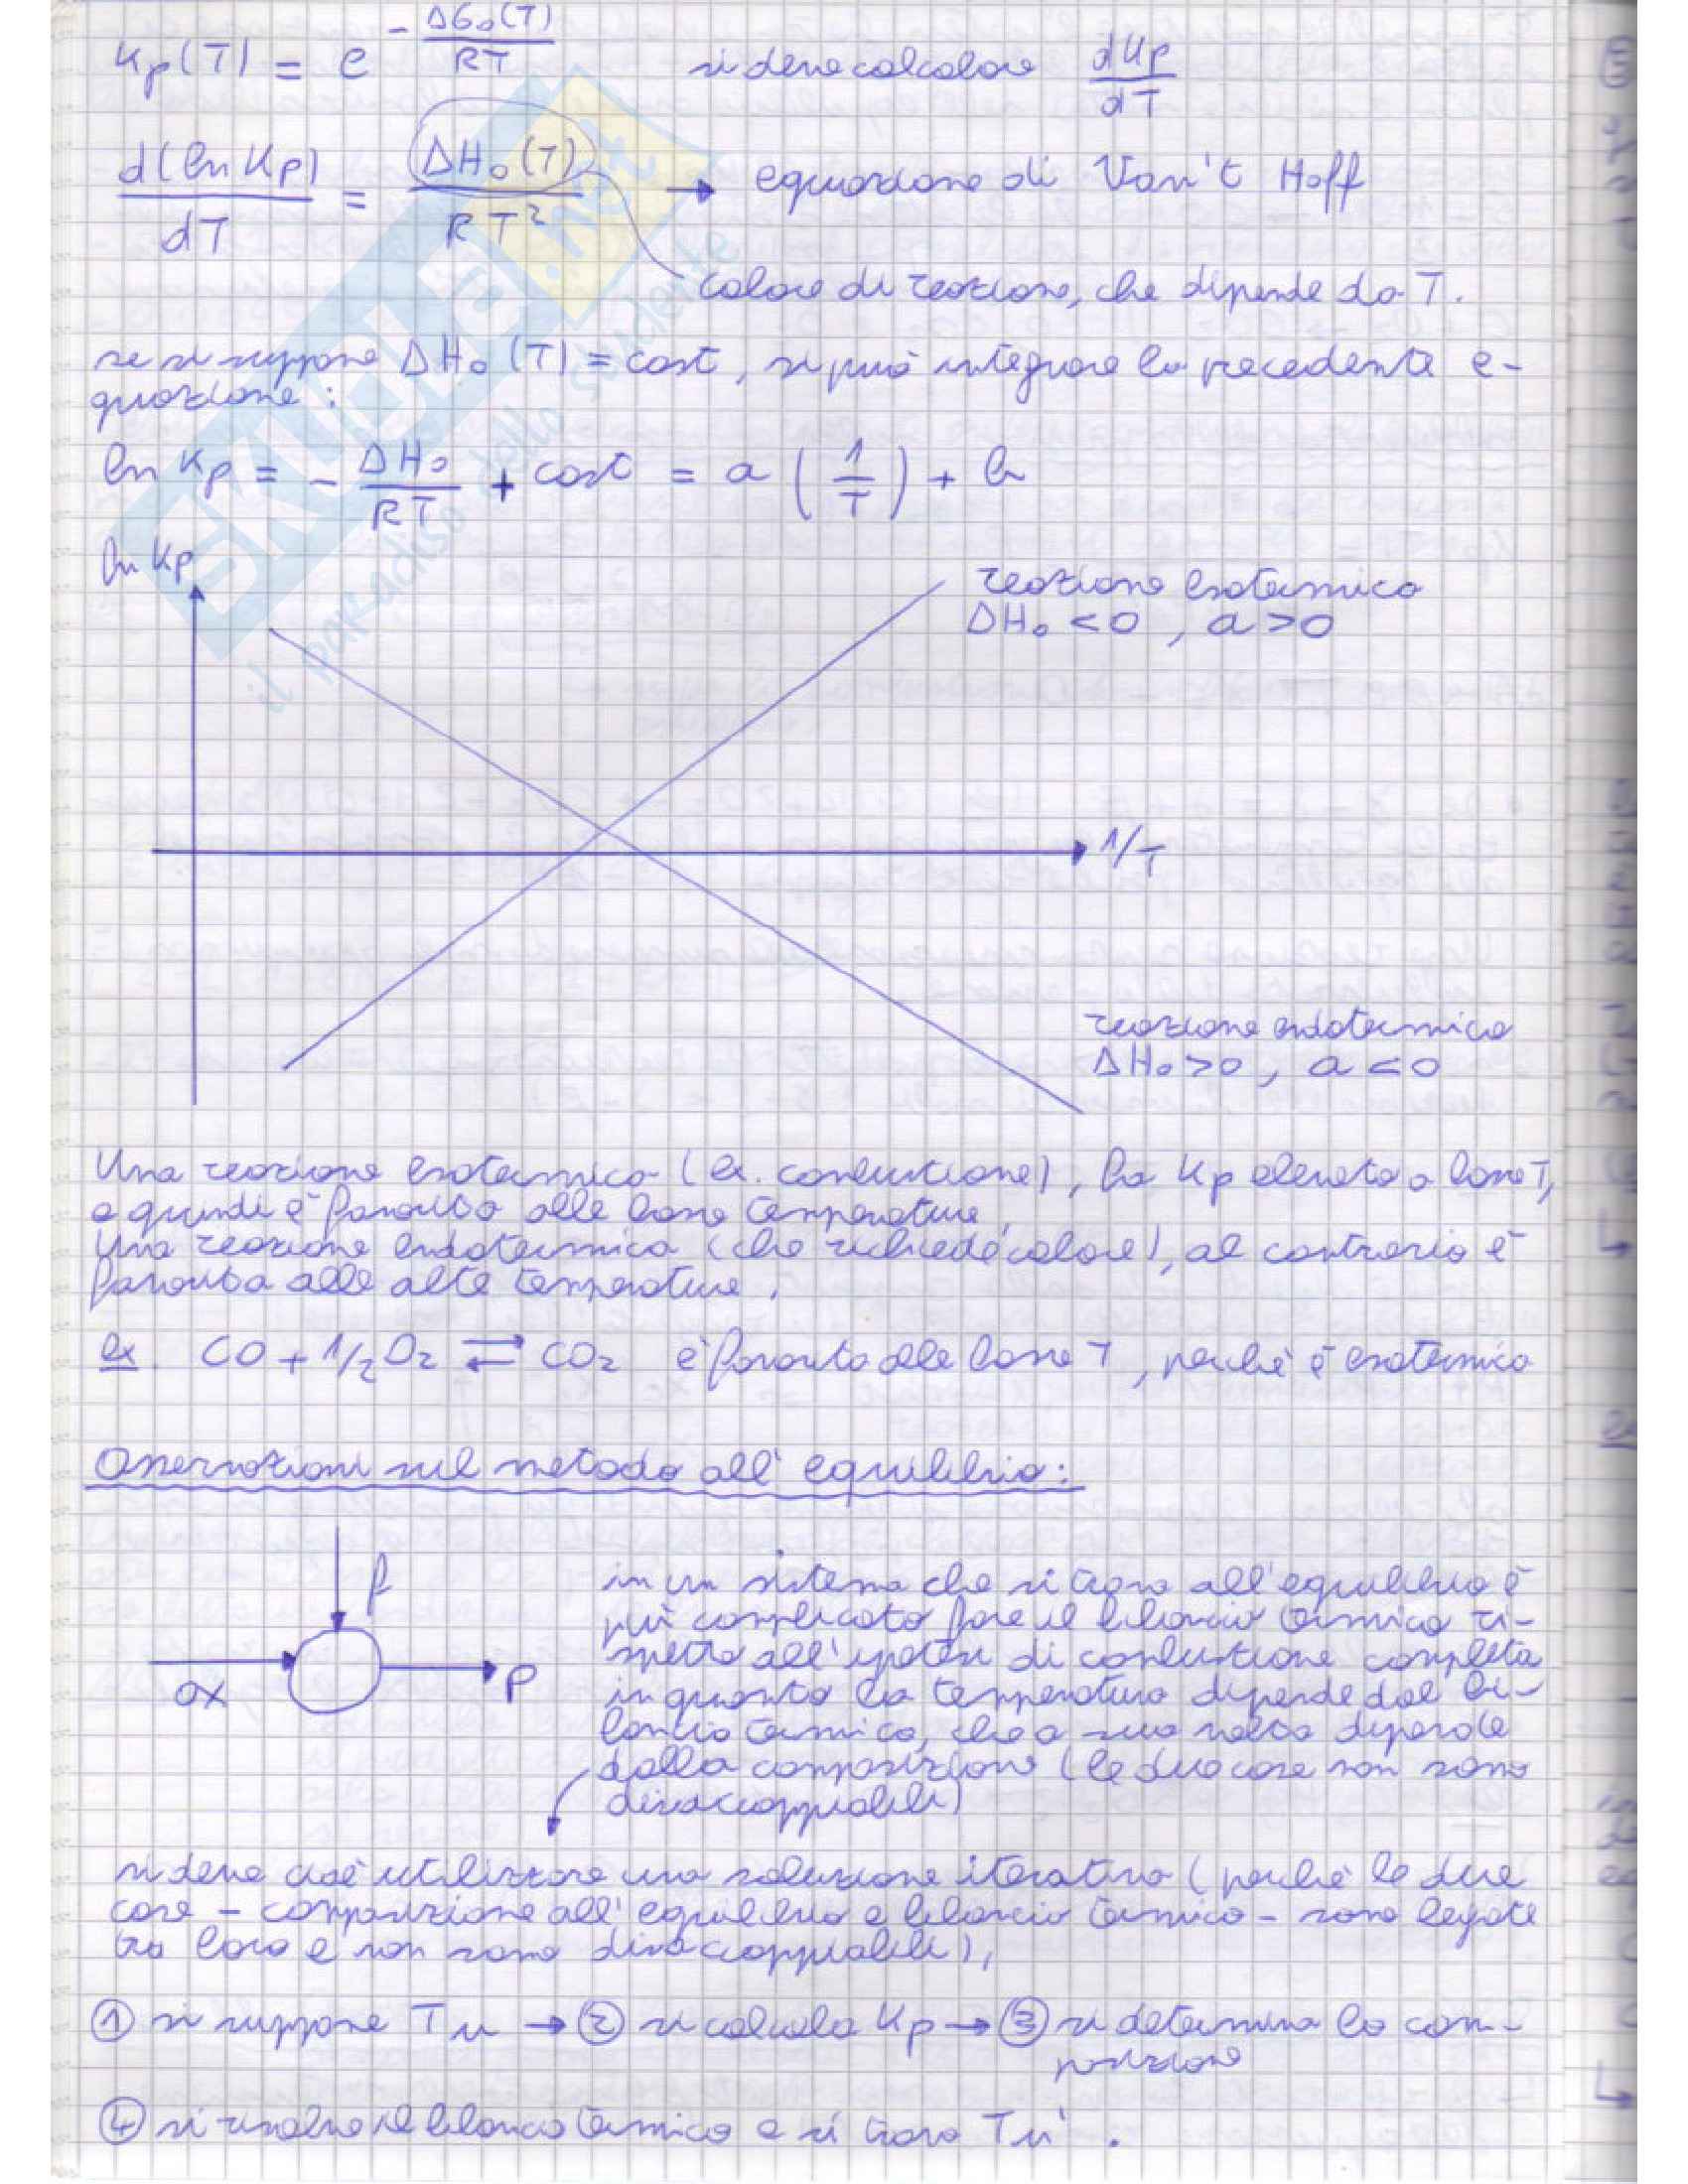 Kp(T) = e^(-ΔG₀(T)/RT) si deve calcolare dKp/dT
d(ln Kp)/dT = ΔH₀(T)/RT² → equazione di Van't Hoff
calore di reazione, che dipende da T.
se si suppone ΔH₀(T) = cost, si può integrare la precedente e-
quazione:
ln Kp = - ΔH₀/RT + cost = a (1/T) + b
ln Kp
reazione esotermica
ΔH₀ < 0, a > 0
1/T
reazione endotermica
ΔH₀ > 0, a < 0
Una reazione esotermica (ex. combustione), ha Kp elevata a bassa T,
e quindi è favorita alle basse temperature,
Una reazione endotermica (che richiede calore), al contrario è
favorita alle alte temperature.
ex. CO + 1/2 O₂ ⇄ CO₂ è favorita alle basse T, perché è esotermica
Osservazioni sul metodo all'equilibrio:
f
ox
p
in un sistema che si trova all'equilibrio è
più complicato fare il bilancio termico ri-
spetto all'ipotesi di combustione completa
in quanto la temperatura dipende dal bi-
lancio termico, che a sua volta dipende
dalla composizione (le due cose non sono
disaccoppiabili)
si deve cioè utilizzare una soluzione iterativa (perché le due
cose - composizione all'equilibrio e bilancio termico - sono legate
tra loro e non sono disaccoppiabili),
① si suppone Tu → ② si calcola Kp → ③ si determina la com-
posizione
④ si risolve il bilancio termico e si trova Tu'.
SKUOLA.net
il paradiso dello studente